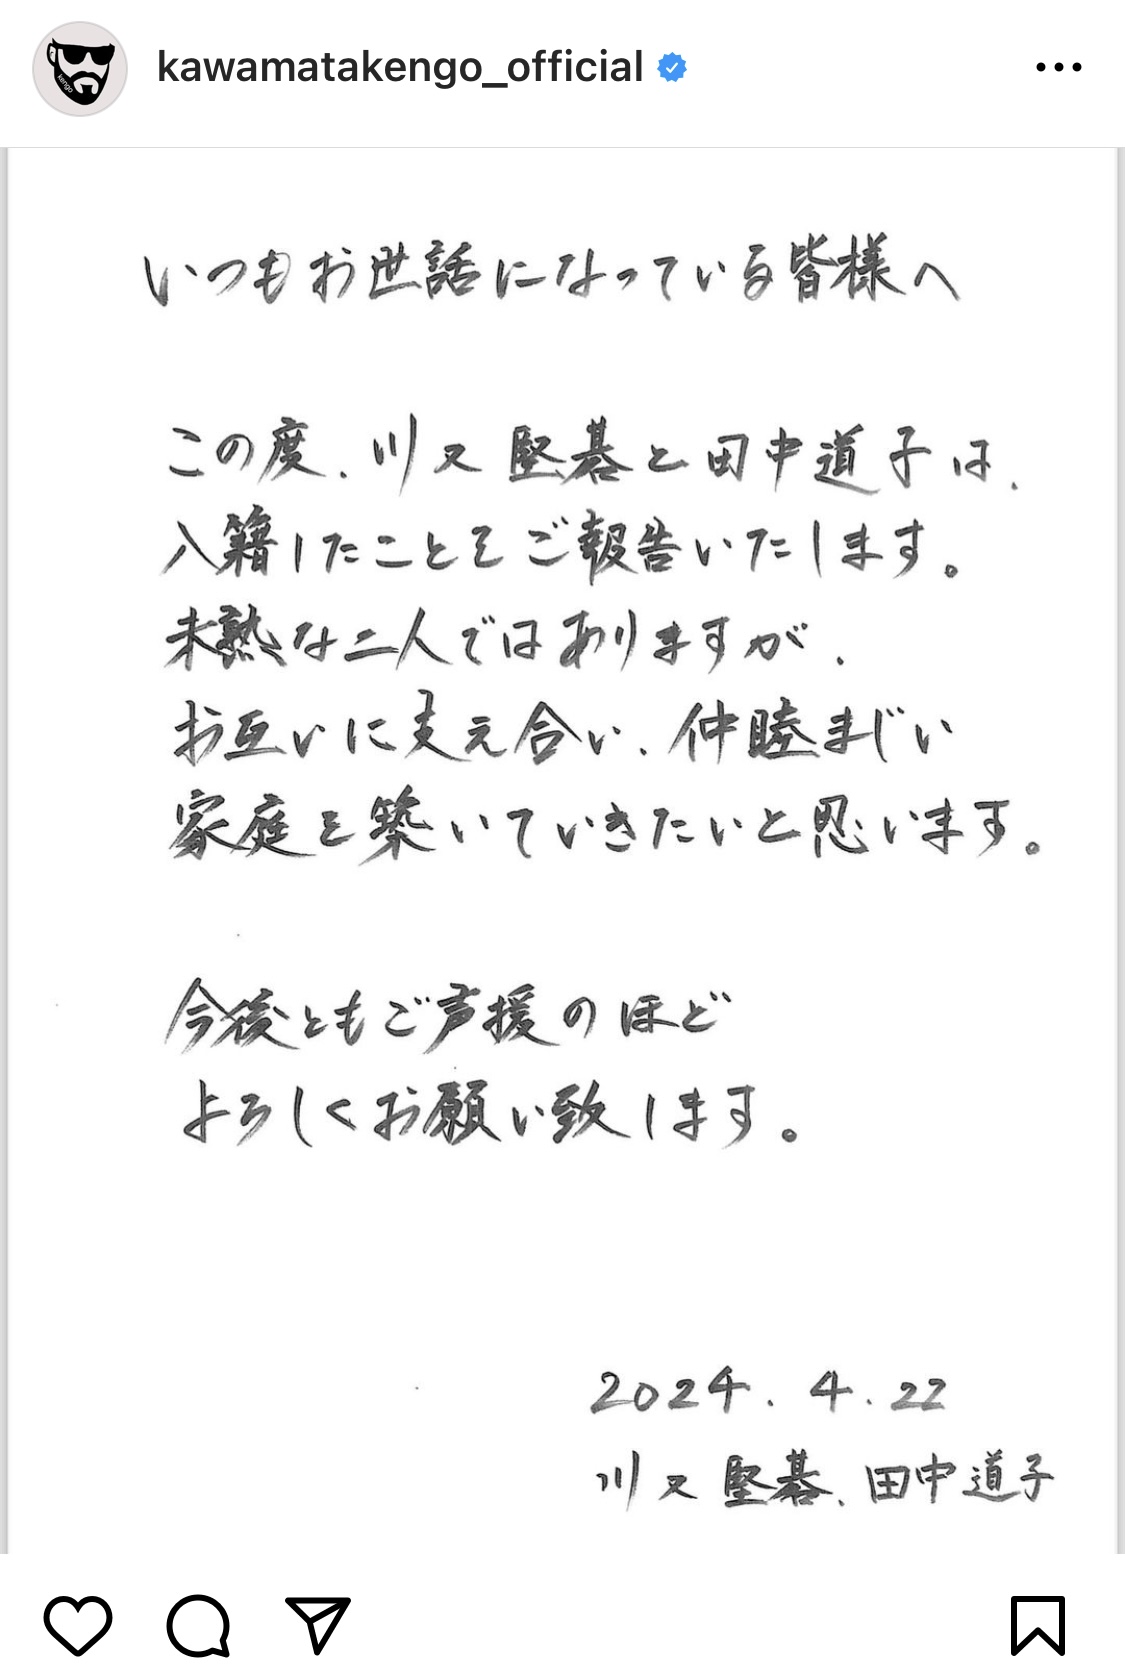 kawamatakengo_official
kengo
いつもお世話になっている皆様へ
この度、川又 堅碁と田中道子は、
入籍したことをご報告いたします。
未熟な二人ではありますが、
お互いに支え合い、仲睦まじい
家庭を築いていきたいと思います。
今後ともご声援のほど
よろしくお願い致します。
2024.4.22
川又 堅碁、田中道子